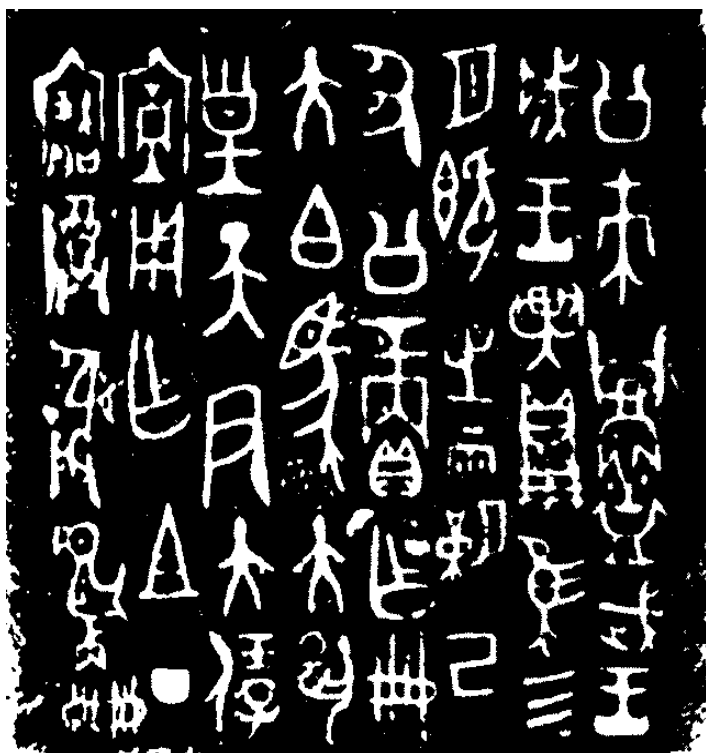 公朿鑄武王
成王異鼎隹四
月既生霸己
丑公賞乍册
大白馬大揚
皇天尹大保
用乍且丁
寶尊彝雋册